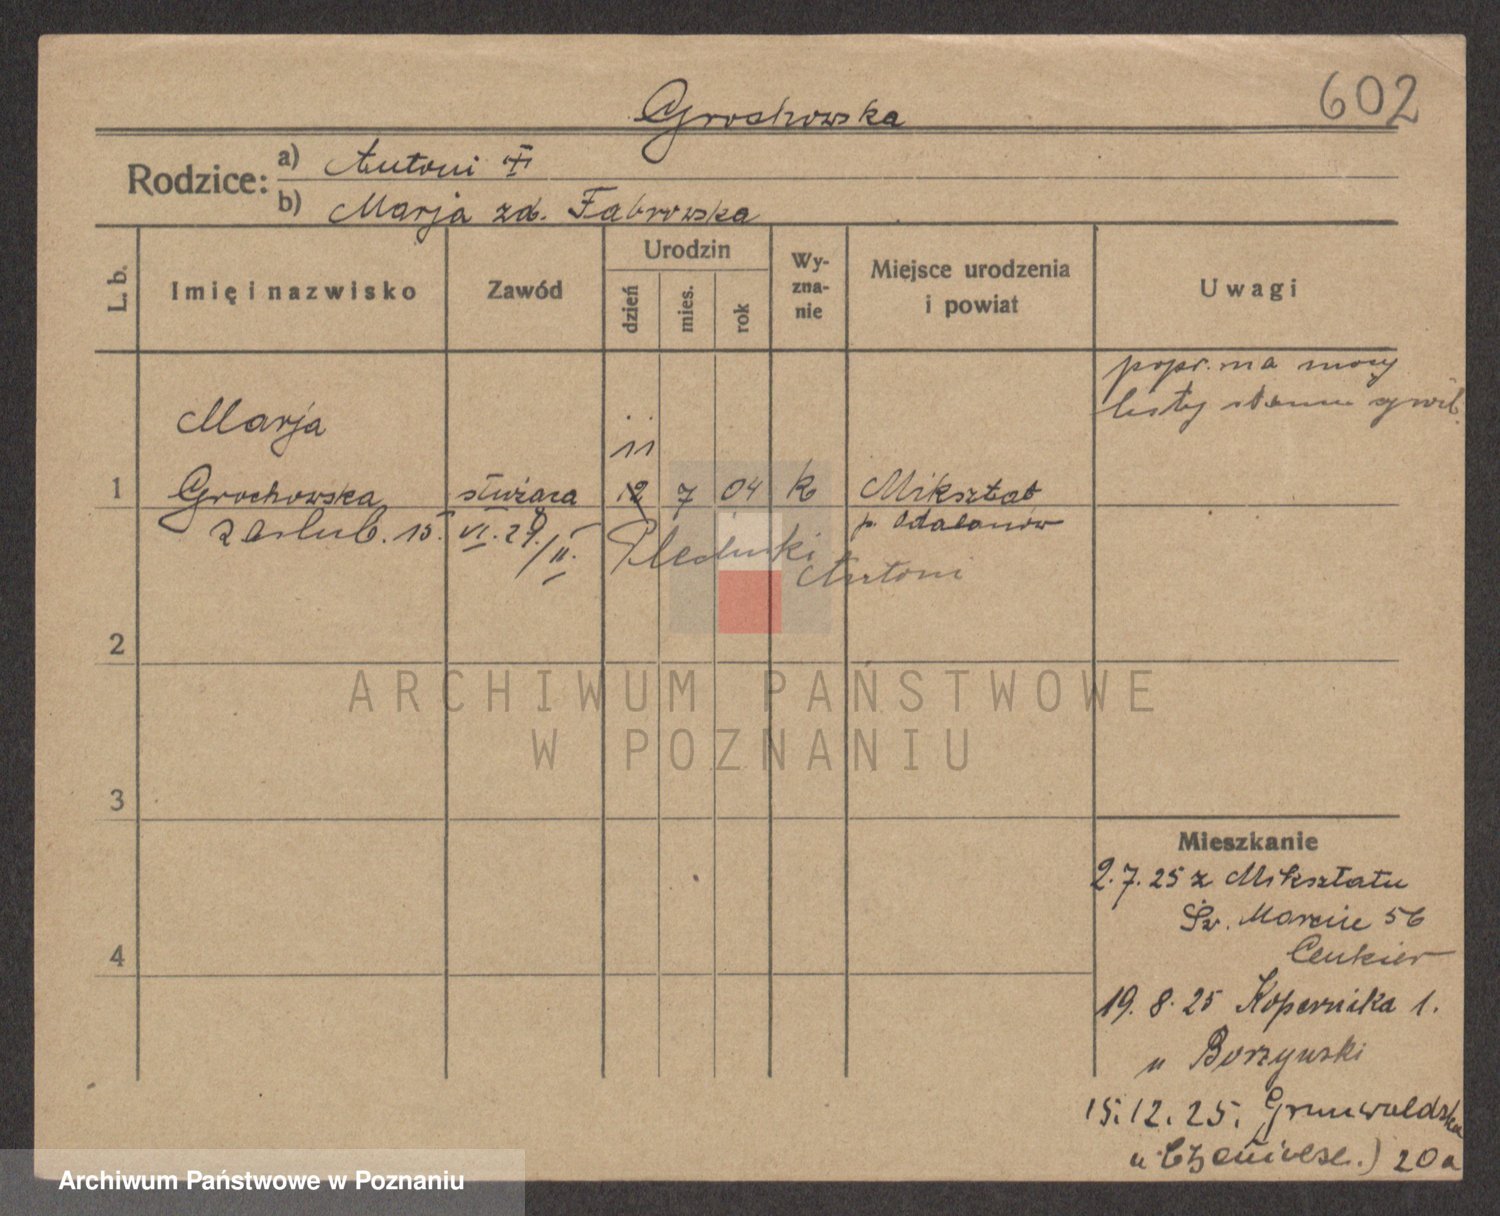 602
Grochowska
Rodzice: a) Antoni †
b) Marja zd. Fabrowska
L. b.
Imię i nazwisko
Zawód
Urodzin
dzień
mies.
rok
Wy-
zna-
nie
Miejsce urodzenia
i powiat
Uwagi
popr. na mocy
listy stanu cywil.
Marja
11
1 Grochowska służąca 12 7 04 k Mikstat
p. Odalanów
zaślub. 15. VI. 29/II. Antoni
2
3
4
Mieszkanie
2.7.25 z Miksztatu
Św. Marcin 56
Cenkier
19.8.25 Kopernika 1.
u Borzynski
15.12.25. Grunwaldzka
u 20a
ARCHIWUM PAŃSTWOWE
W POZNANIU
Archiwum Państwowe w Poznaniu